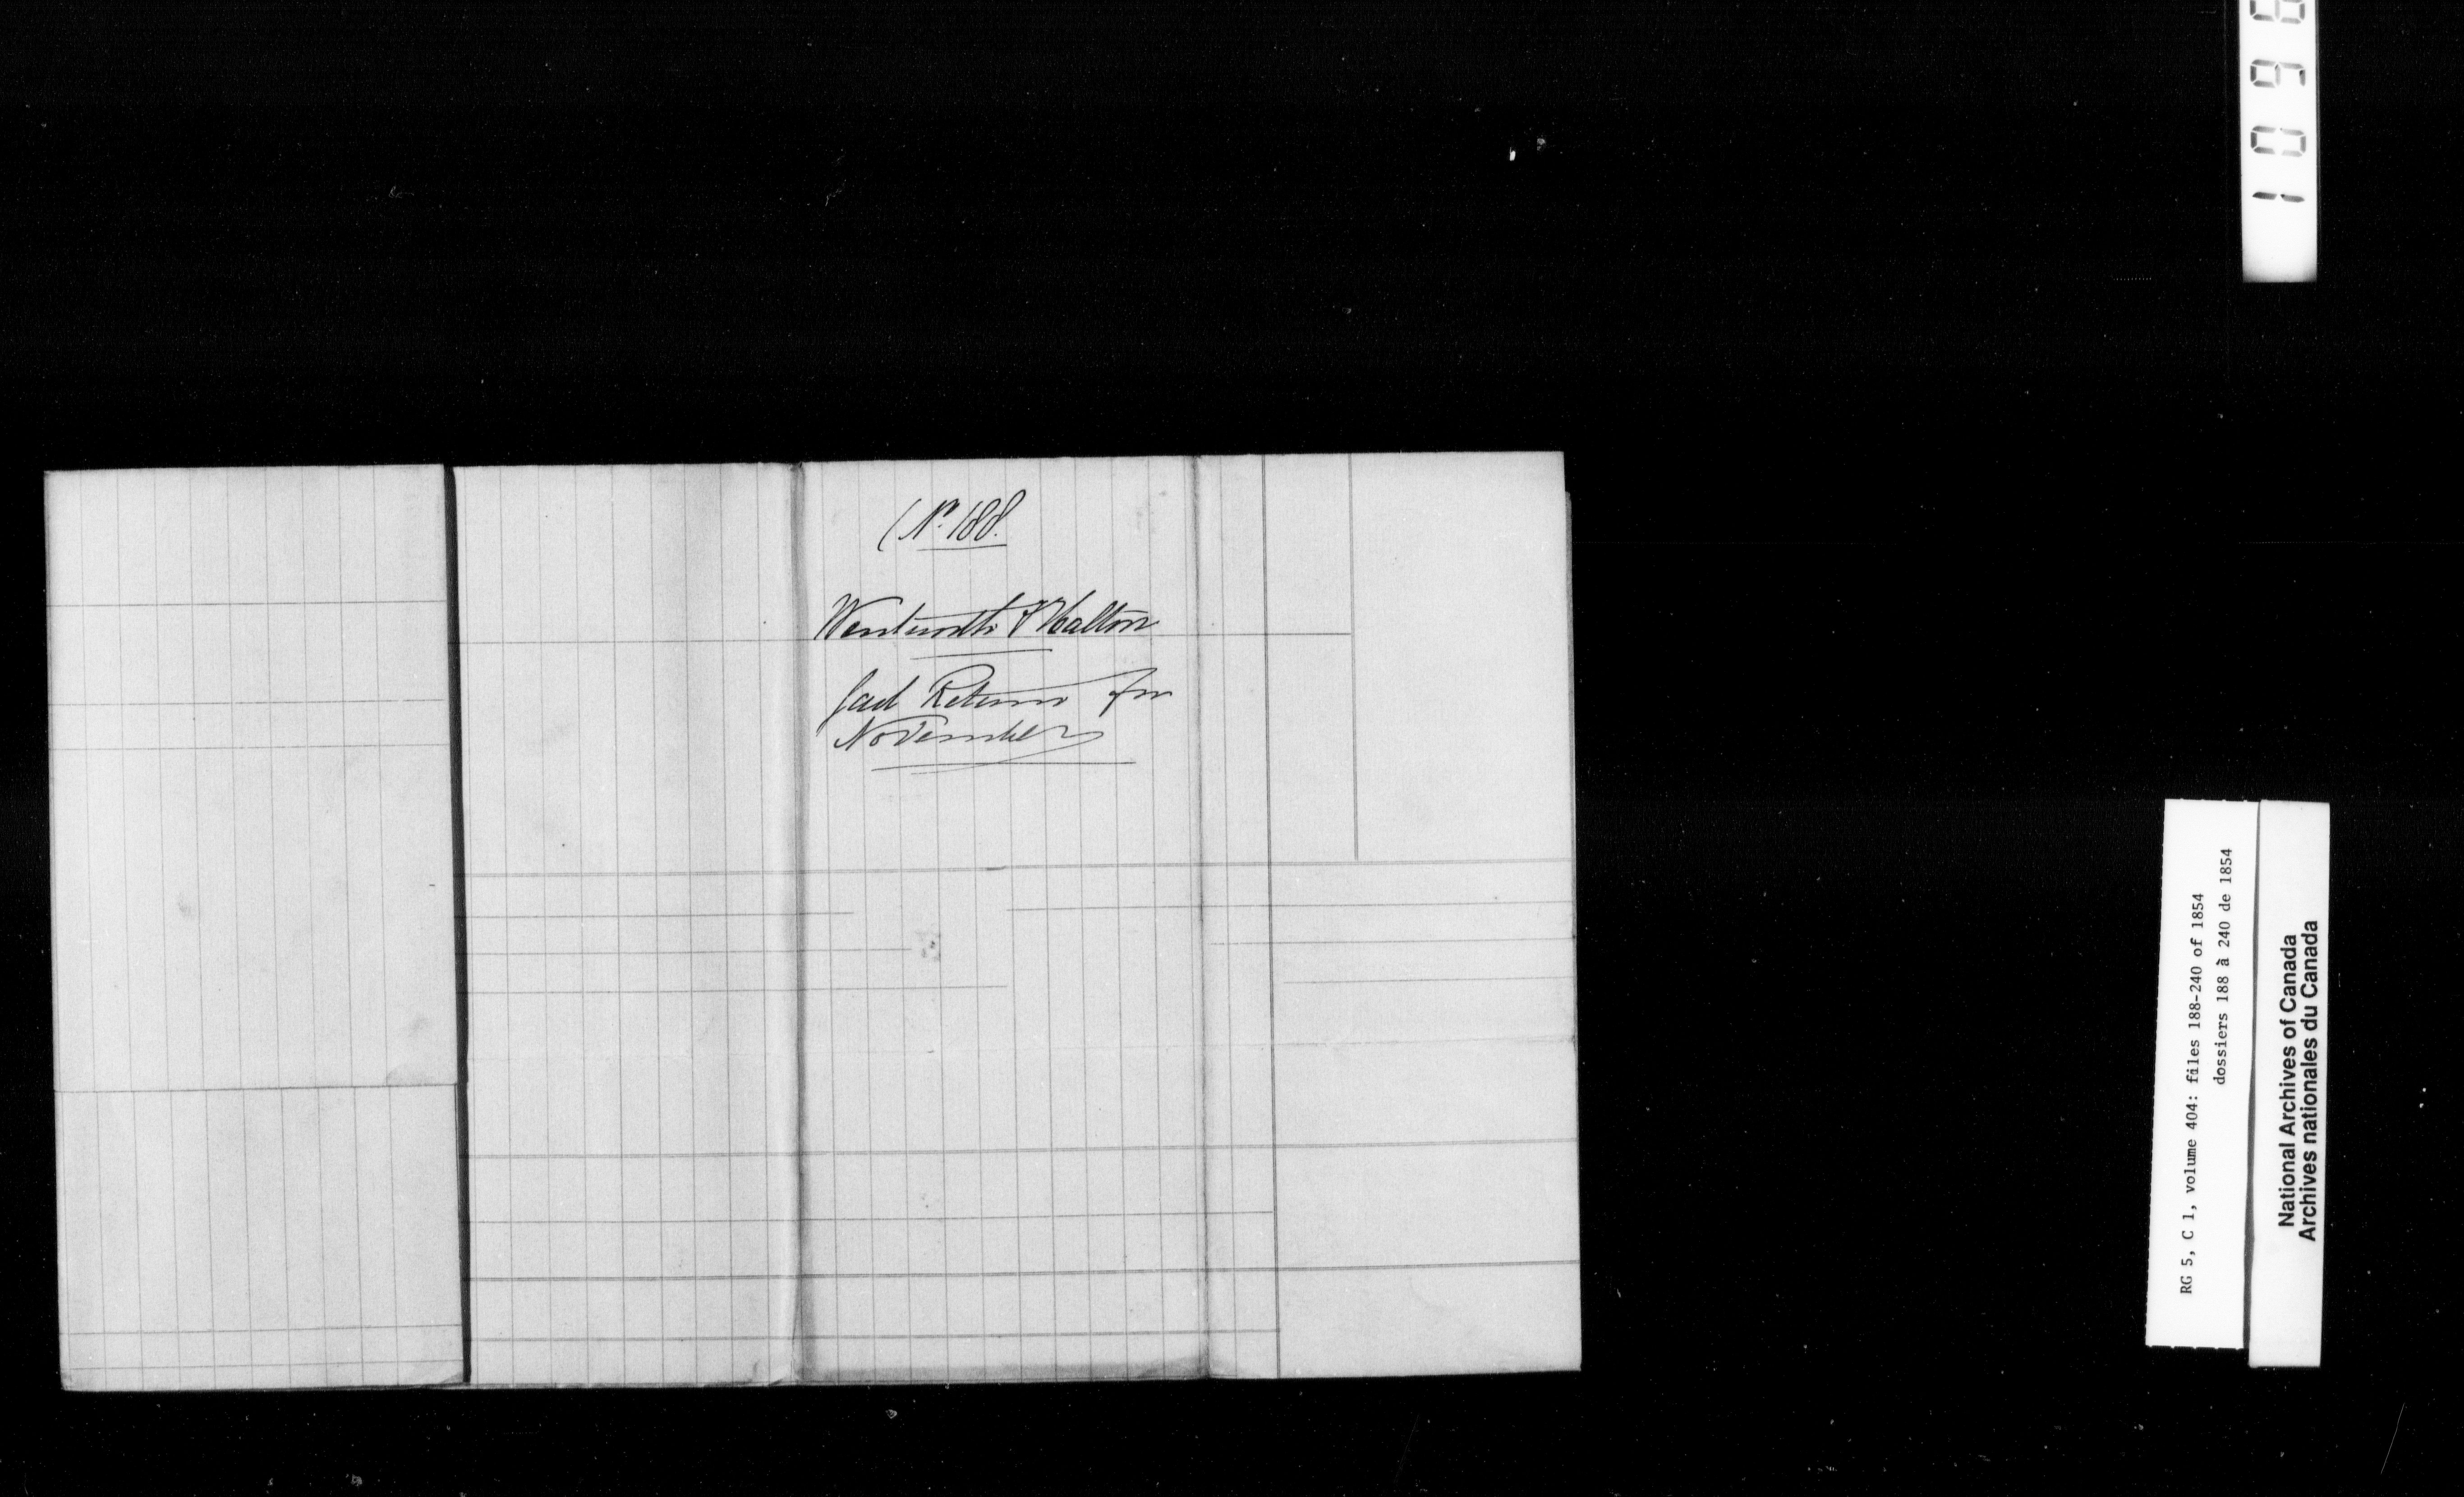 (No. 188.
Wentworth & Halton
Gaol Return for
November
RG 5, C 1, volume 404: files 188-240 of 1854
dossiers 188 à 240 de 1854
National Archives of Canada
Archives nationales du Canada
1096